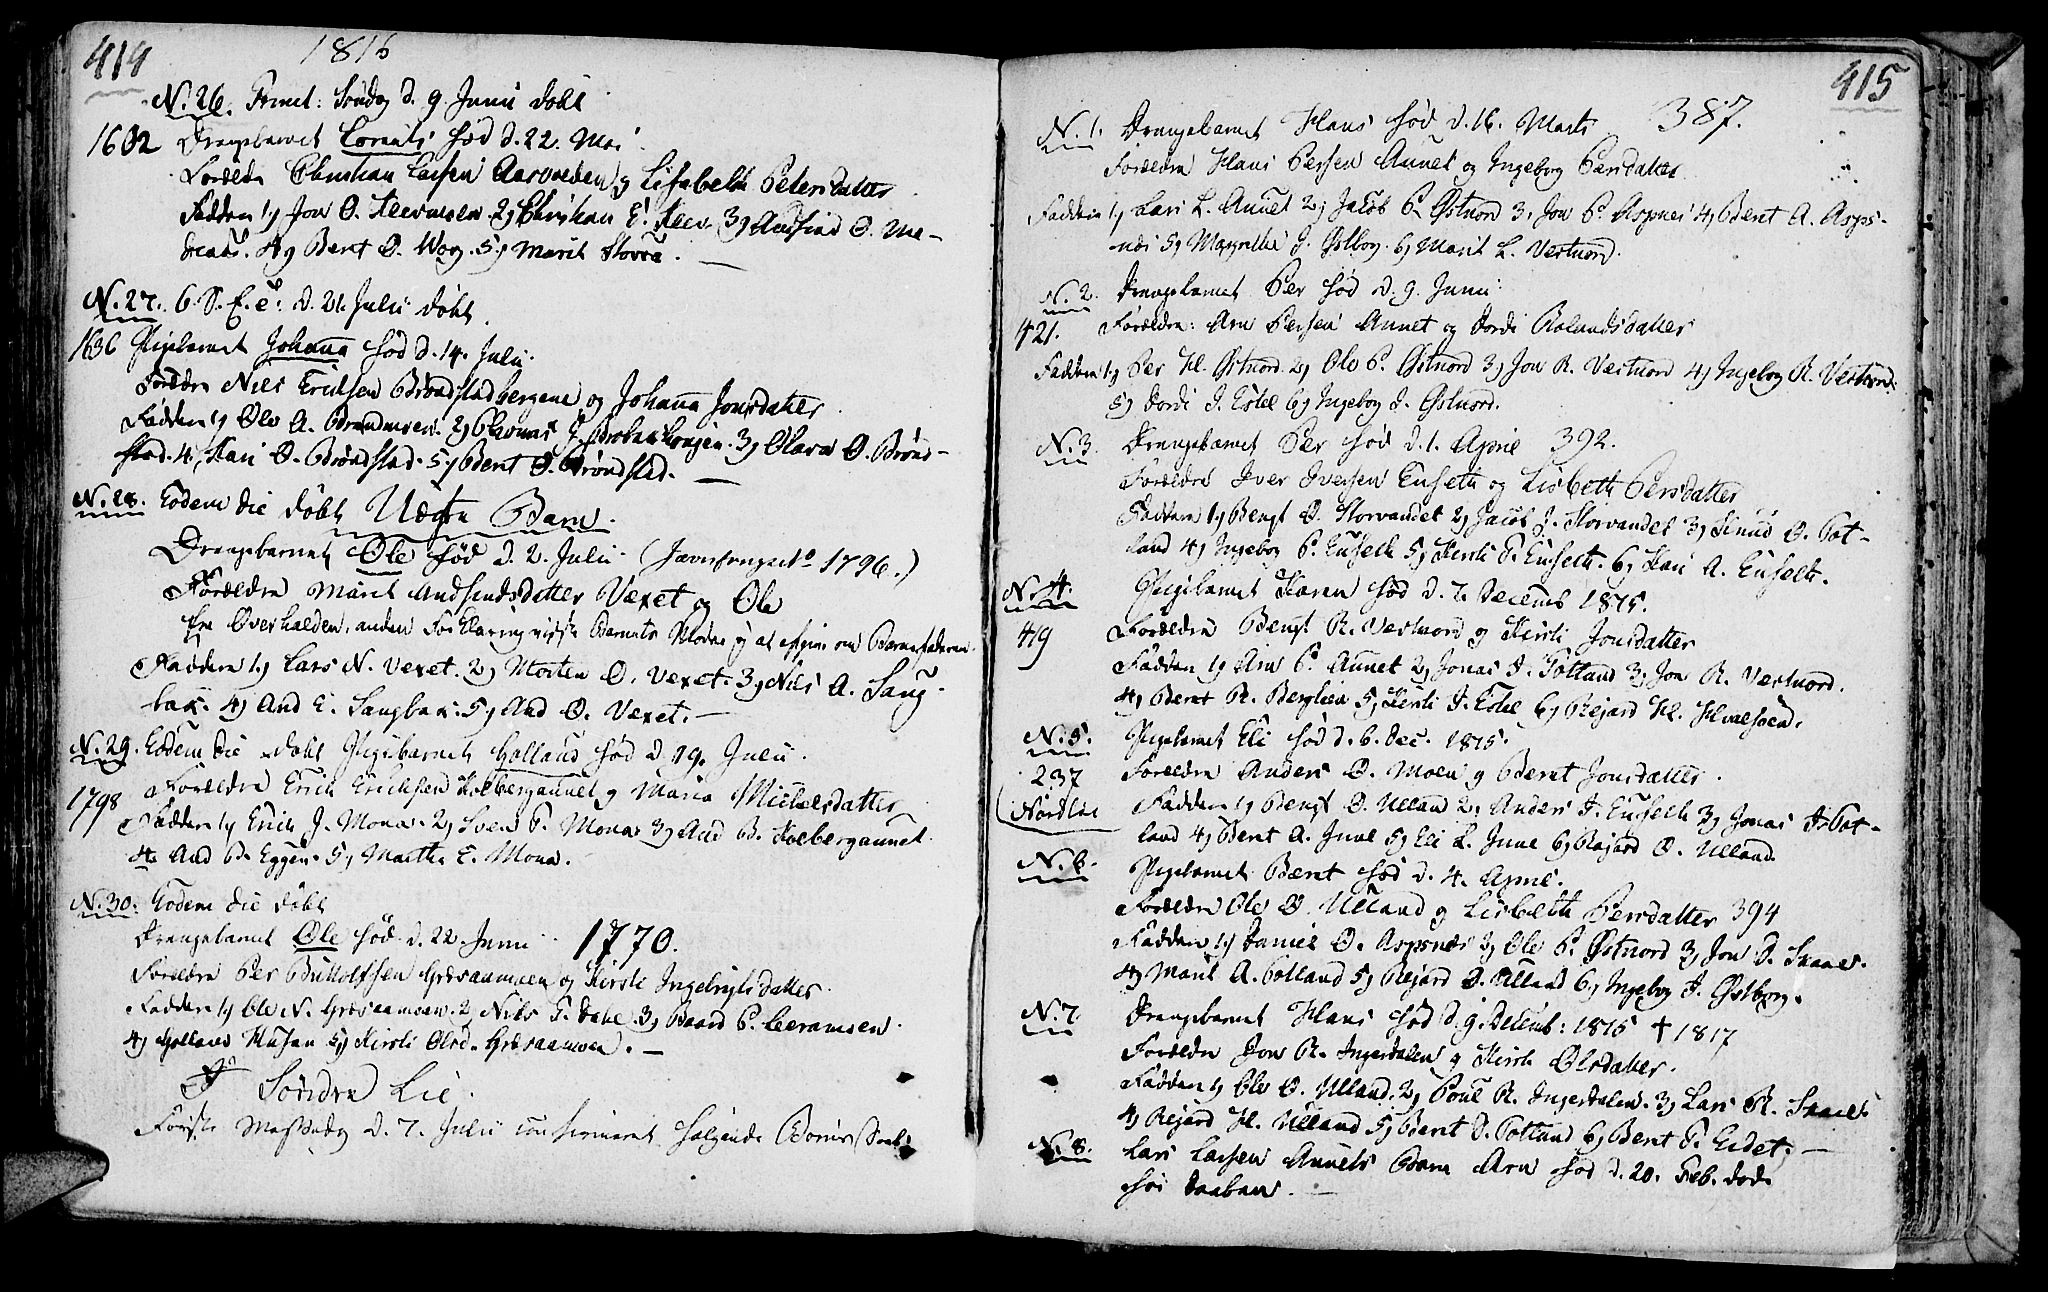 414
1816
N. 26. Trinit: Søndag d. 9. Junii døbt
1602 Drengebarnet Cornelis fød d. 22. Mai
Forældre Christian Larsen Aarveden og Lisabeth Petersdatter
Faddere 1, Jon O. 2, Christian E. 3, O. Me-
4, Bent O. Wog. 5, Marit Storra.
N. 27. 6. S. e. d. 21. Julii døbt
1636 Pigebarnet Johanna fød d. 14. Julii
Forældre Nils Ericksen Brøndstadbergene og Johanna Jonsdatter
Faddere 1, Ole A. 2, Thomas E. 3, Olava O. Brønd-
stad. 4, Kari O. Brøndstad. 5, Bent O. Brøndstad.
N. 28. Eodem die døbt Uægte Barn.
Drengebarnet Ole fød d. 2. Julii 1796.)
Forældre Marit Andfindsdatter Vexet og Ole
fra Overhalden, anden Forklaring Barnets Moder ej at afgive om Barnefaderen.
Faddere 1, Lars N. Vexet. 2, Morten O. Vexet. 3, Nils A. Sang-
bak. 4, And E. Sangbak. 5, And O. Vexet.
N. 29. Eodem die døbt Pigebarnet Golland fød d. 19. Junii.
1798 Forældre Erick Ericksen Kolbergaunet og Maria Michelsdatter
Faddere 1, Erich J. Mona. 2, Sven T. Mona 3, And B. Kolbergaunet
4. And B. Eggen. 5, Martha E. Mona.
N. 30. Eodem die døbt
Drengebarnet Ole fød d. 22. Junii 1770.
Forældre Per Buttolfsen Græsaamoen og Kirsti Ingebrigtsdatter
Faddere 1, Ole N. Græsaamoen. 2, Nils T. Dahl. 3, Baard P.
4, Golland Musan 5, Kirsti Olsd. Græsaamoen.
I Søndre Lie.
Første Messedag d. 7. Julii confirmeret følgende Børns Daab:
415
387.
N. 1. Drengebarnet Hans fød d. 16. Marts
Forældre Hans Persen Aunet og Ingeborg Persdatter
Faddere 1, Lars L. Aunet 2, Jacob P. Østnord 3, Jon P. Aspnes 4, Bent A. Asps-
næs 5, Magrethe J. Østborg. 6, Marit L. Vestnord.
N. 2. Drengebarnet Per fød d. 9. Junii
421. Forældre: Arn Persen Aunet og Dordi Rolandsdatter
Faddere 1, Per H. Østnord 2, Ole P. Østnord 3, Jon R. Vestnord 4, Ingeborg R. Vestnord.
5, Dordi J. Estil 6, Ingeborg J. Østnord.
N. 3. Drengebarnet Per fød d. 1. April 392.
Forældre Iver Iversen Enseth og Lisbeth Persdatter
Faddere 1, Bengt O. Storvandet 2, Jacob J. Storvandet 3, Knud O. Tot-
land 4, Ingeborg P. Enseth 5, Kirsti T. Enseth. 6, Kari A. Enseth.
N. 4. Pigebarnet Karen fød d. 7. Decemb 1815.
419 Forældre Bengt R. Vestnord og Kirsti Jonsdatter
Faddere 1, Arn P. Aunet 2, Jonas J. Totland 3, Jon R. Vestnord.
4, Bent R. Berglien 5, Kirsti J. Estil 6, Rejard H.
N. 5. Pigebarnet Eli fød d. 6. Dec. 1815.
237 Forældre Anders O. Moen og Beret Jonsdatter.
(Nordlie Faddere 1, Bengt O. Ulland 2, Anders J. Enseth 3, Jonas J. Tot-
land 4, Beret A. June 5, Eli L. June 6, Rejard O. Ulland
N. 6. Pigebarnet Beret fød d. 4. April.
Forældre Ole O. Ulland og Lisbeth Persdatter 394
Faddere 1, Daniel O. Aspsnæs 2, Ole P. Østnord 3, Jon D. Skaale.
4, Marit A. Totland 5, Rejard O. Ulland 6, Ingeborg J. Østborg.
N. 7. Drengebarnet Hans fød d. 9. Decemb: 1815 † 1817
Forældre Jon R. Ingerdalen og Kirsti Olsdatter.
Faddere 1, Ole O. Ulland. 2, Poul R. Ingerdalen. 3, Lars R. Skaale
4, Rejard H. Ulland 5, Beret D. Totland 6, Beret T. Eidet.
N. 8. Lars Larsen Aunets Barn Arn fød d. 20. Feb. døde
før Daaben.